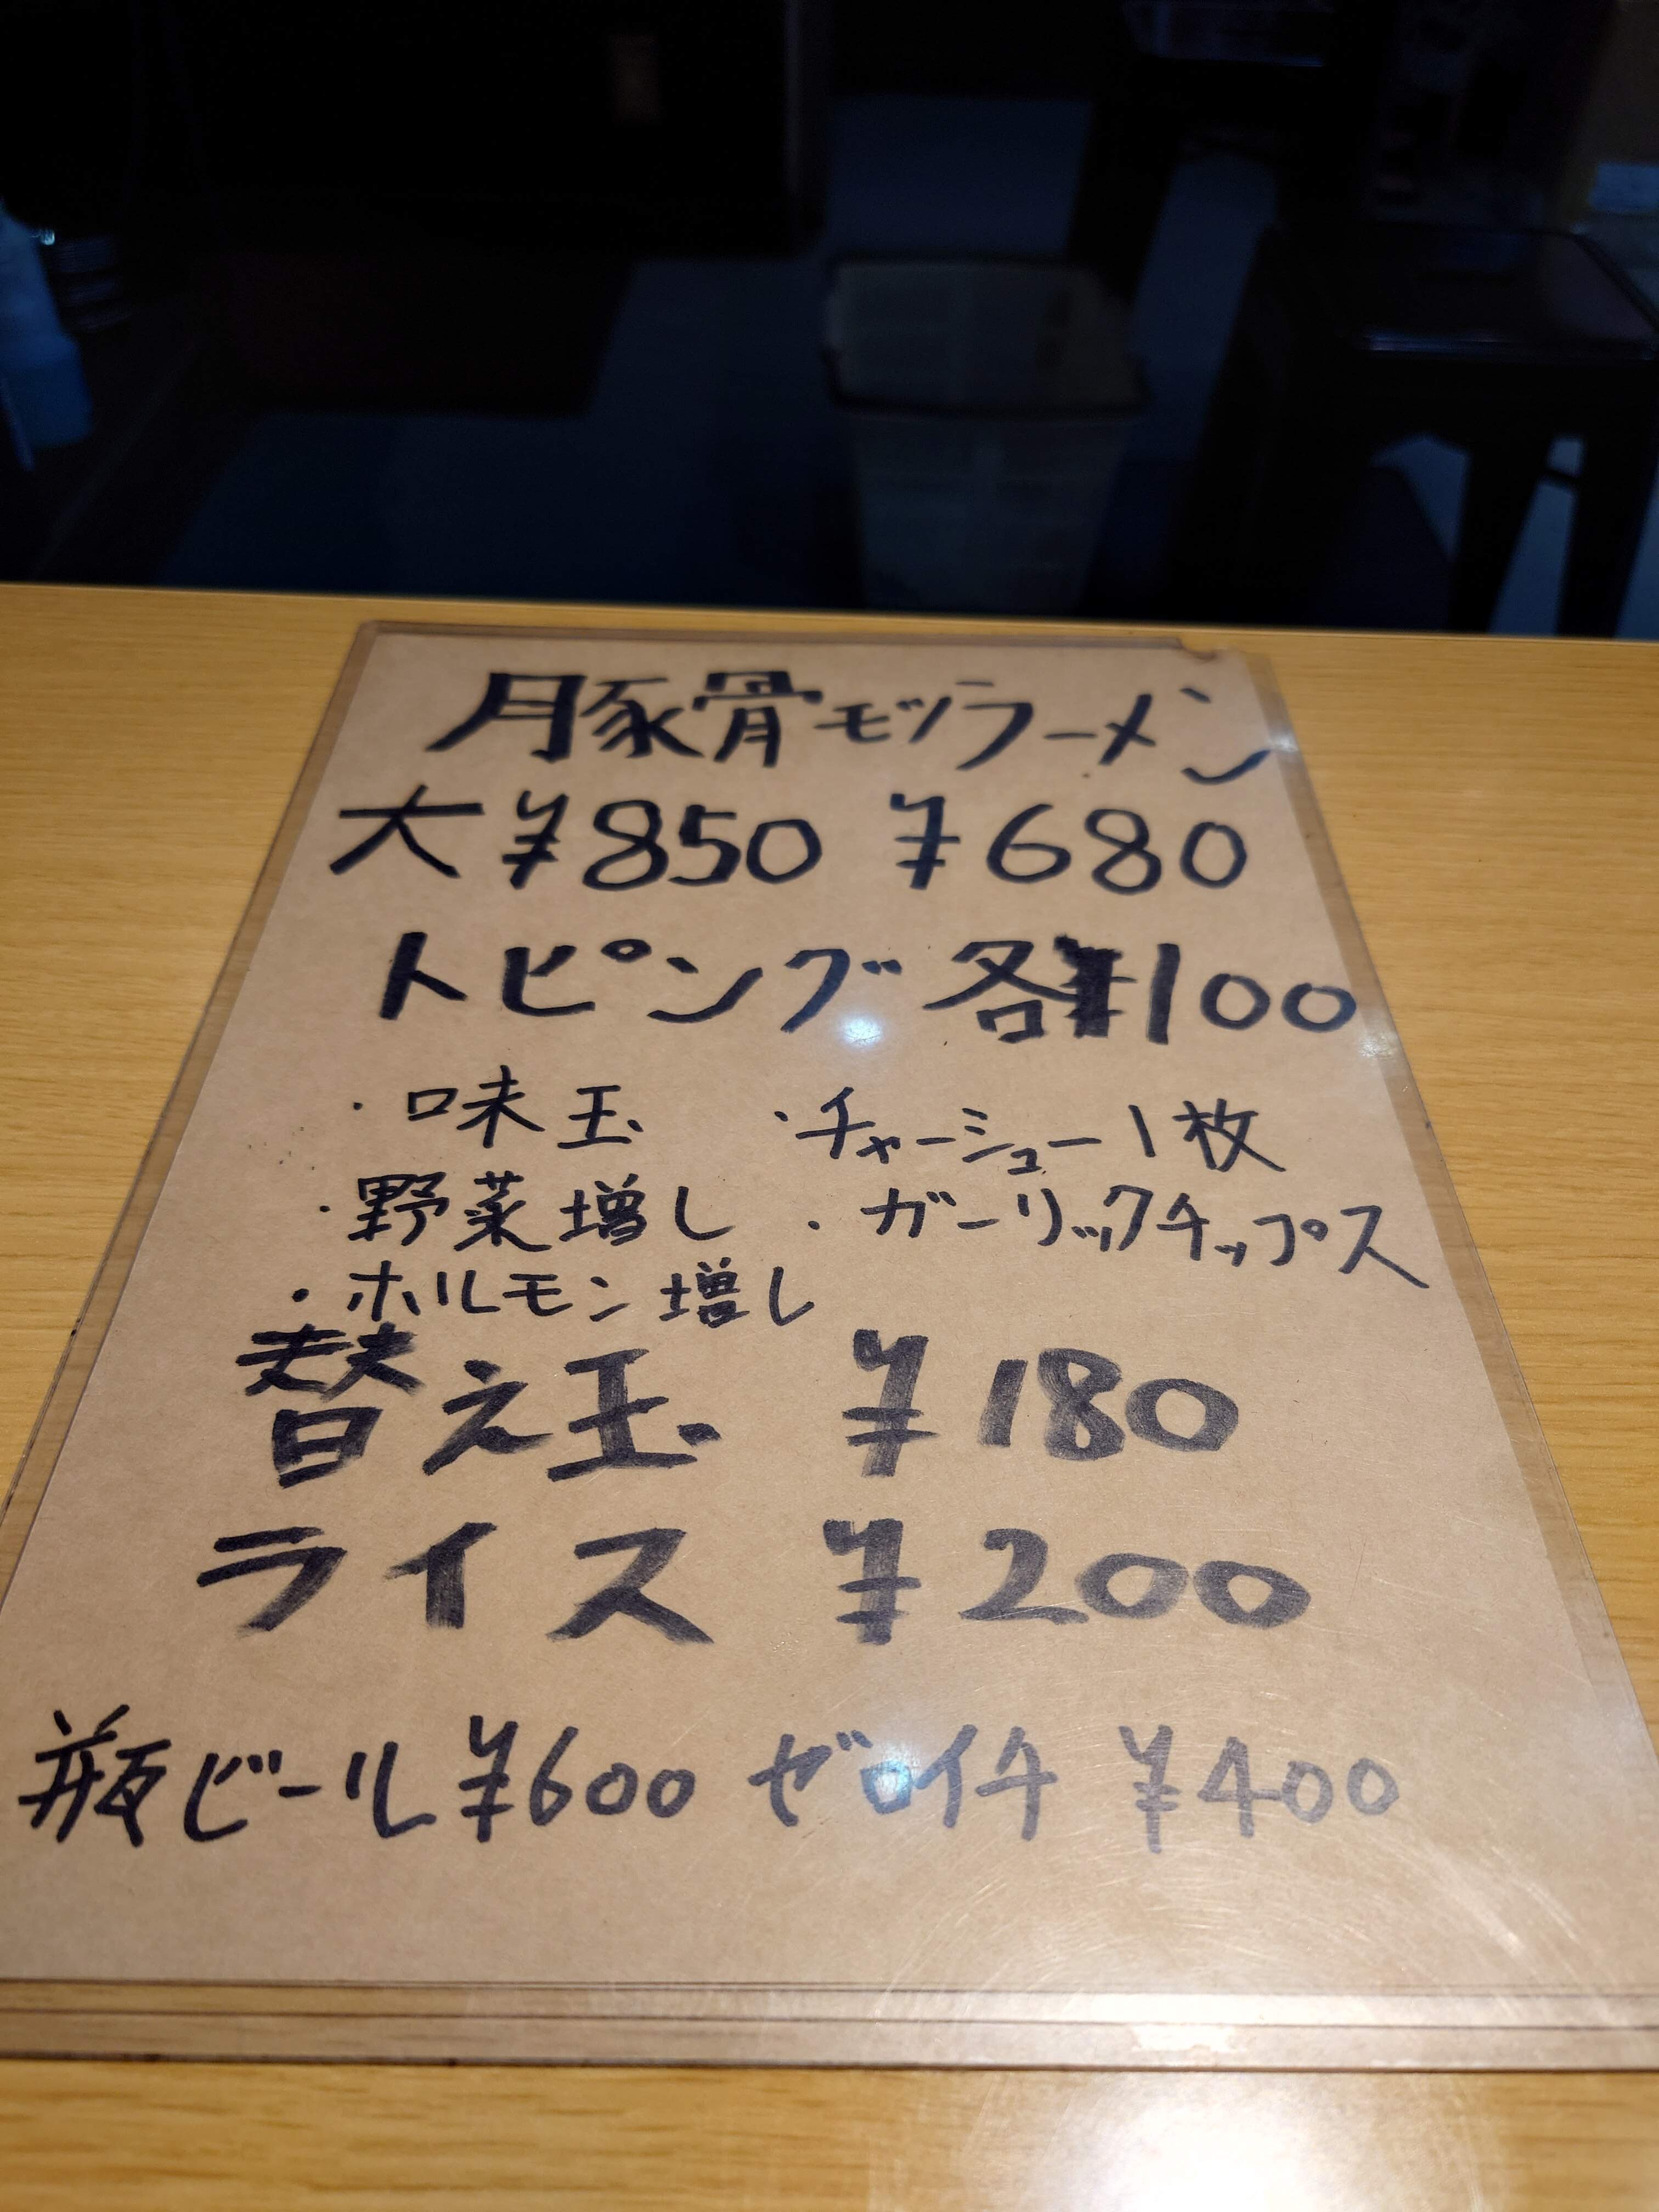 豚骨モツラーメン
大 ¥850 ¥680
トピング 各¥100
・味玉 ・チャーシュー1枚
・野菜増し ・ガーリックチップス
・ホルモン増し
替え玉 ¥180
ライス ¥200
瓶ビール ¥600 ゼロイチ ¥400